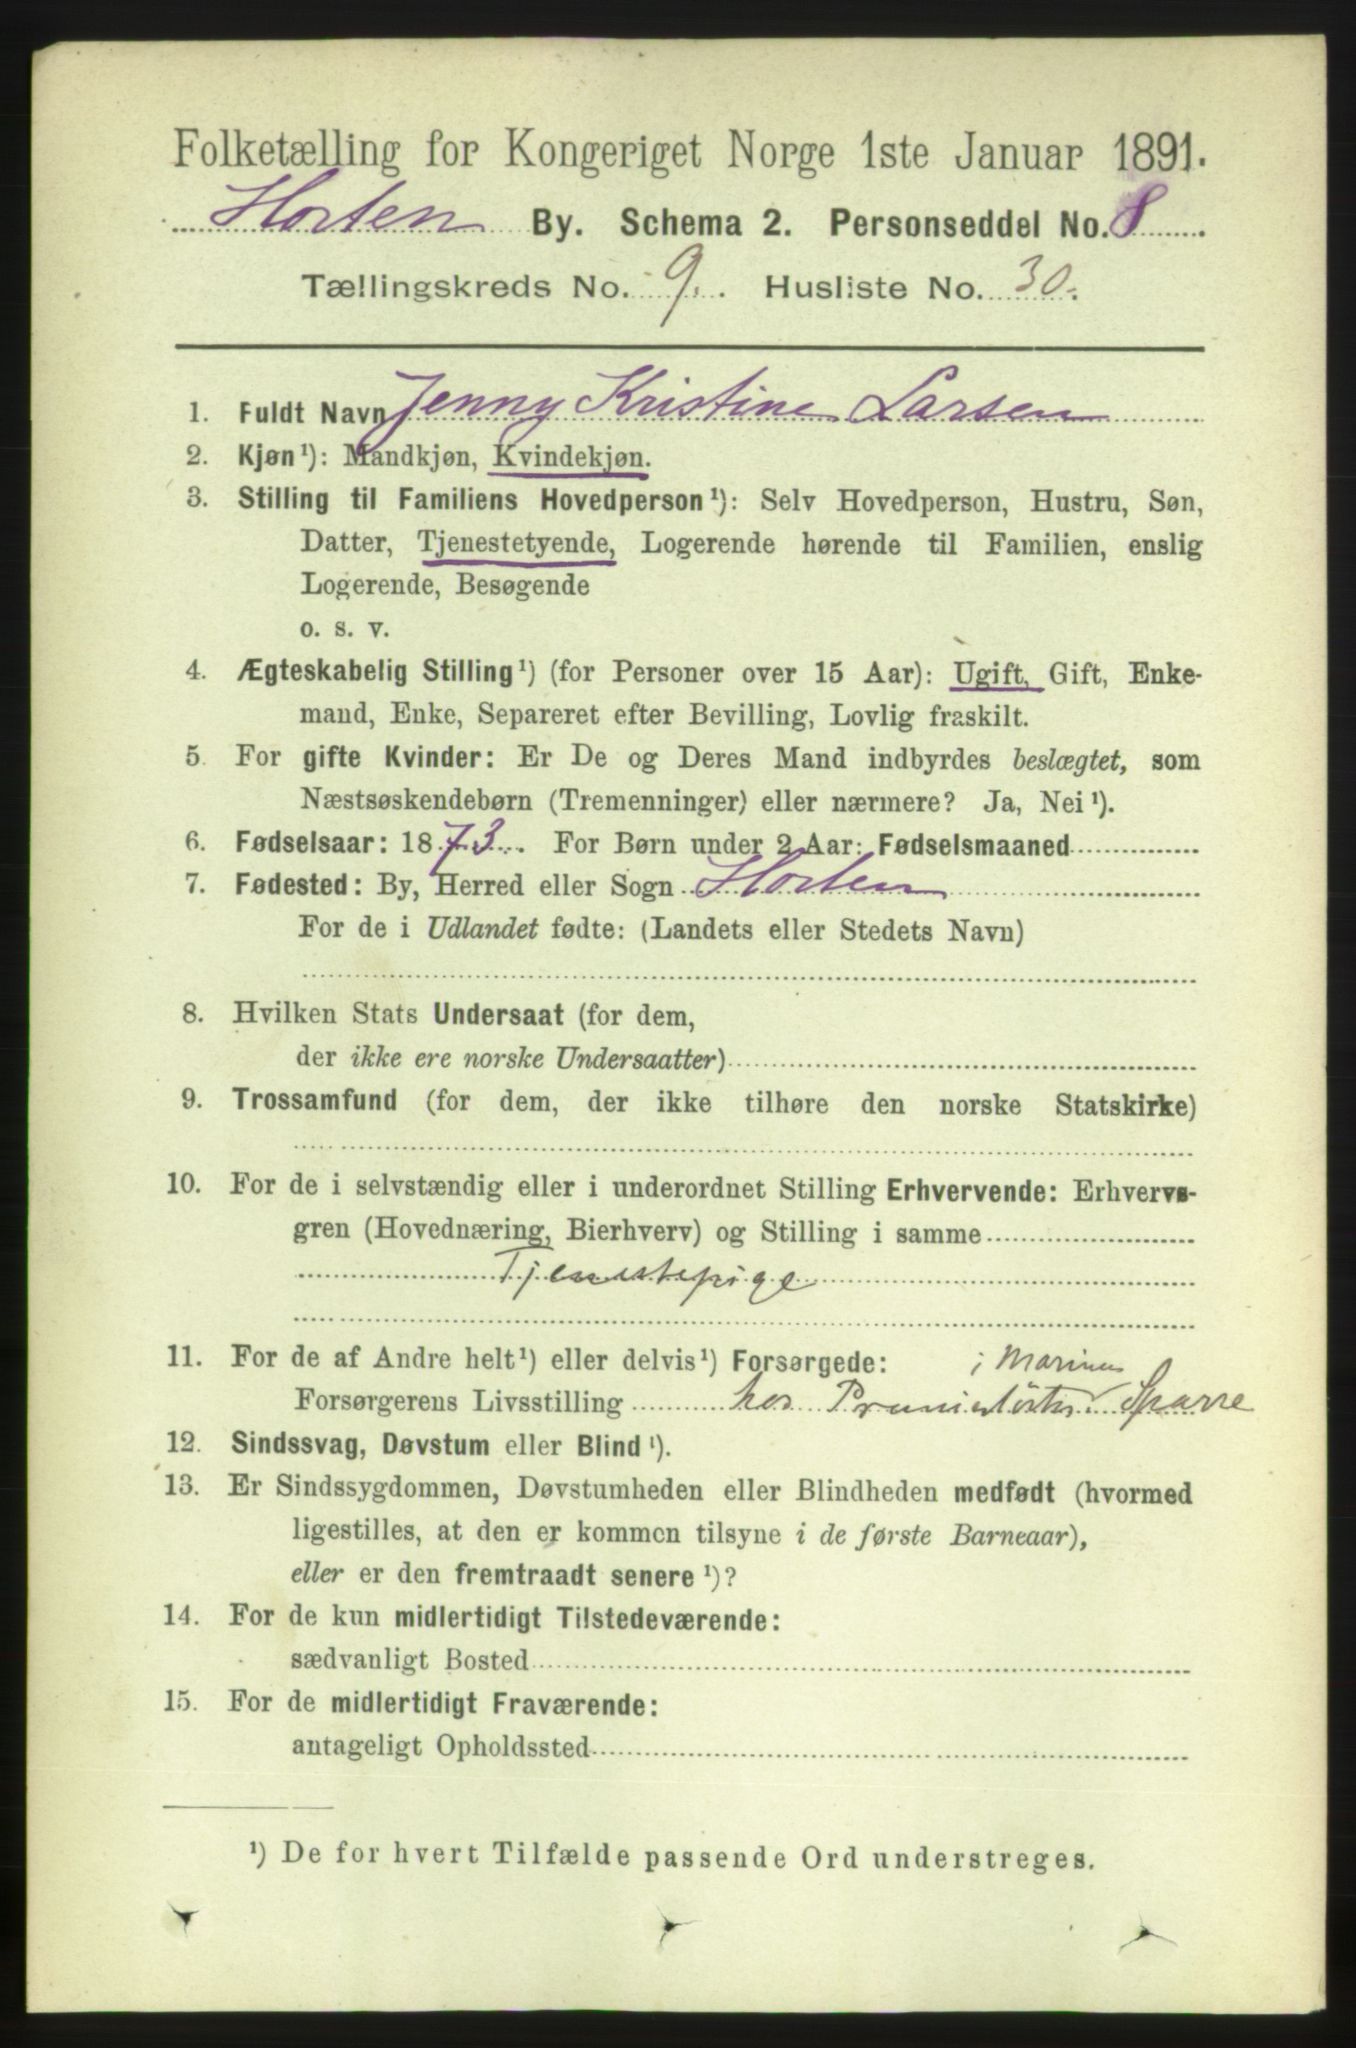 Folketælling for Kongeriget Norge 1ste Januar 1891.
Horten By. Schema 2. Personseddel No. 8
Tællingskreds No. 9. Husliste No. 30.
1. Fuldt Navn Jenny Kristine Larsen
2. Kjøn¹): Mandkjøn, Kvindekjøn.
3. Stilling til Familiens Hovedperson¹): Selv Hovedperson, Hustru, Søn,
Datter, Tjenestetyende, Logerende hørende til Familien, enslig
Logerende, Besøgende
o. s. v.
4. Ægteskabelig Stilling¹) (for Personer over 15 Aar): Ugift, Gift, Enke-
mand, Enke, Separeret efter Bevilling, Lovlig fraskilt.
5. For gifte Kvinder: Er De og Deres Mand indbyrdes beslægtet, som
Næstsøskendebørn (Tremenninger) eller nærmere? Ja, Nei¹).
6. Fødselsaar: 1873. For Børn under 2 Aar: Fødselsmaaned
7. Fødested: By, Herred eller Sogn Horten
For de i Udlandet fødte: (Landets eller Stedets Navn)
8. Hvilken Stats Undersaat (for dem,
der ikke ere norske Undersaatter)
9. Trossamfund (for dem, der ikke tilhøre den norske Statskirke)
10. For de i selvstændig eller i underordnet Stilling Erhvervende: Erhvervs-
gren (Hovednæring, Bierhverv) og Stilling i samme
Tjenestepige
11. For de af Andre helt¹) eller delvis¹) Forsørgede: i Marinen
Forsørgerens Livsstilling hos Sparre
12. Sindssvag, Døvstum eller Blind¹).
13. Er Sindssygdommen, Døvstumheden eller Blindheden medfødt (hvormed
ligestilles, at den er kommen tilsyne i de første Barneaar),
eller er den fremtraadt senere¹)?
14. For de kun midlertidigt Tilstedeværende:
sædvanligt Bosted
15. For de midlertidigt Fraværende:
antageligt Opholdssted
¹) De for hvert Tilfælde passende Ord understreges.